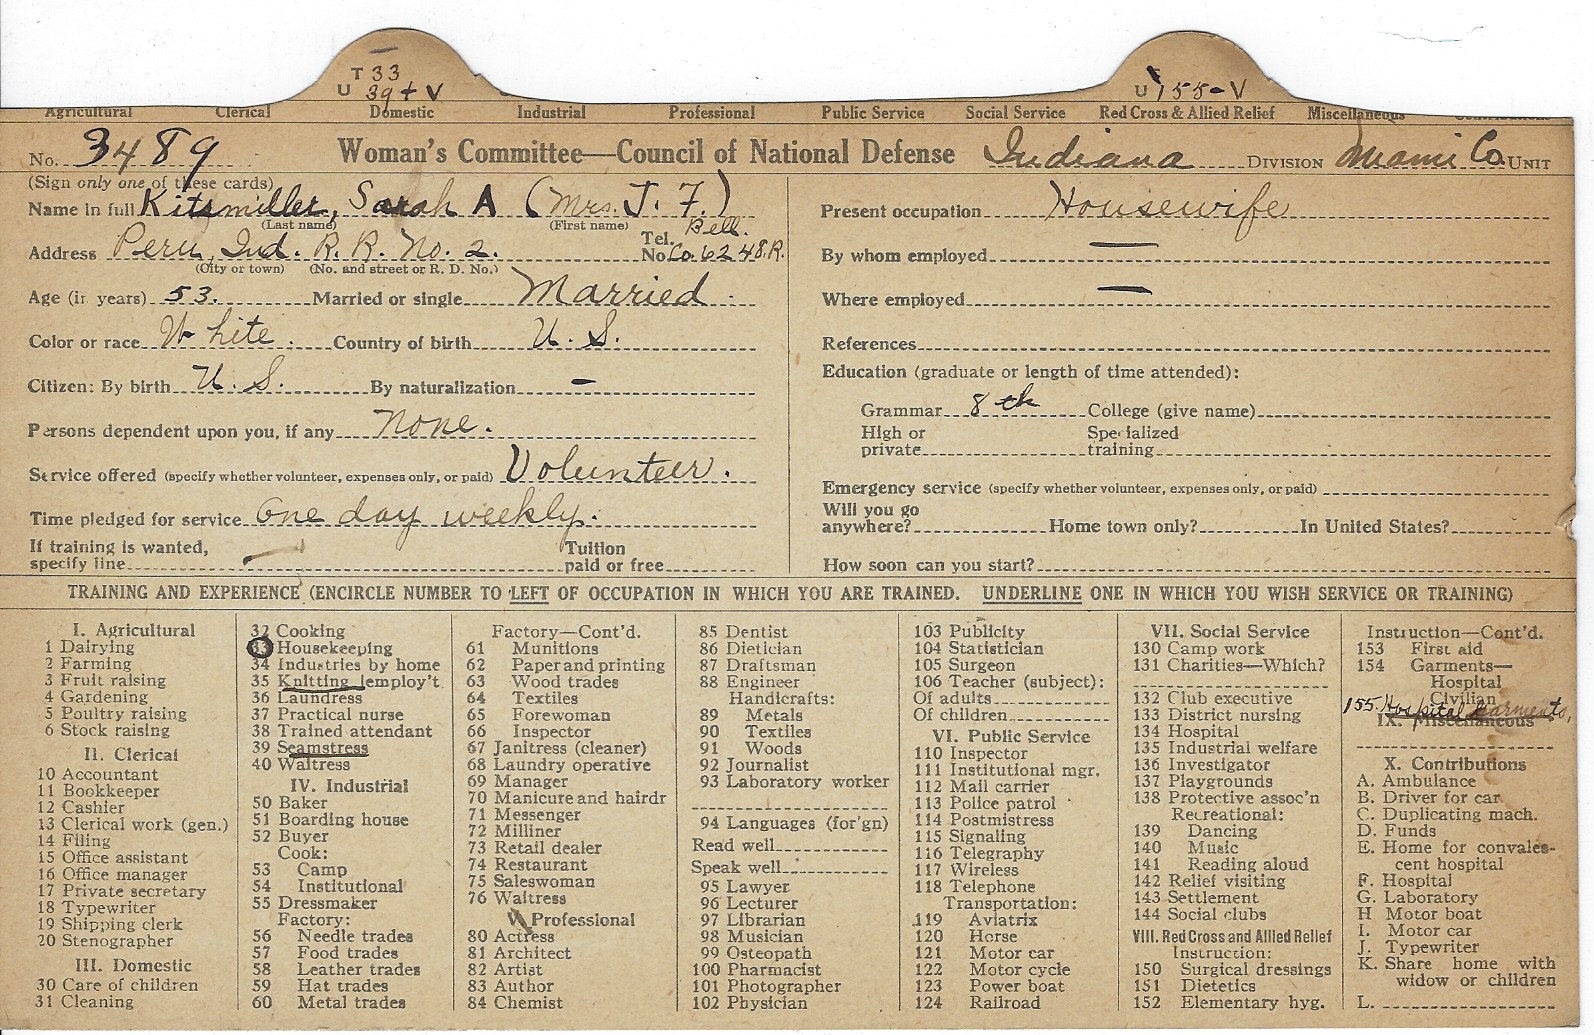 T 33
U 39 + V
U 155 - V
Agricultural Clerical Domestic Industrial Professional Public Service Social Service Red Cross & Allied Relief Miscellaneous Contributions
No. 3489 Woman's Committee—Council of National Defense Indiana DIVISION Miami Co. UNIT
(Sign only one of these cards)
Name in full Kitsmiller, Sarah A (Mrs. J. F.)
(Last name) (First name)
Address Peru, Ind. R. R. No. 2. Tel. No. Bell. Co. 6248.R.
(City or town) (No. and street or R. D. No.)
Age (in years) 53. Married or single Married
Color or race White. Country of birth U. S.
Citizen: By birth U. S. By naturalization –
Persons dependent upon you, if any None.
Service offered (specify whether volunteer, expenses only, or paid) Volunteer.
Time pledged for service One day weekly.
If training is wanted, specify line — Tuition paid or free
Present occupation Housewife
By whom employed —
Where employed —
References
Education (graduate or length of time attended):
Grammar 8th College (give name)
High or private Specialized training
Emergency service (specify whether volunteer, expenses only, or paid)
Will you go anywhere? Home town only? In United States?
How soon can you start?
TRAINING AND EXPERIENCE (ENCIRCLE NUMBER TO LEFT OF OCCUPATION IN WHICH YOU ARE TRAINED. UNDERLINE ONE IN WHICH YOU WISH SERVICE OR TRAINING)
I. Agricultural
1 Dairying
2 Farming
3 Fruit raising
4 Gardening
5 Poultry raising
6 Stock raising
II. Clerical
10 Accountant
11 Bookkeeper
12 Cashier
13 Clerical work (gen.)
14 Filing
15 Office assistant
16 Office manager
17 Private secretary
18 Typewriter
19 Shipping clerk
20 Stenographer
III. Domestic
30 Care of children
31 Cleaning
32 Cooking
33 Housekeeping
34 Industries by home
35 Knitting [employ't
36 Laundress
37 Practical nurse
38 Trained attendant
39 Seamstress
40 Waitress
IV. Industrial
50 Baker
51 Boarding house
52 Buyer
Cook:
53 Camp
54 Institutional
55 Dressmaker
Factory:
56 Needle trades
57 Food trades
58 Leather trades
59 Hat trades
60 Metal trades
Factory—Cont'd.
61 Munitions
62 Paper and printing
63 Wood trades
64 Textiles
65 Forewoman
66 Inspector
67 Janitress (cleaner)
68 Laundry operative
69 Manager
70 Manicure and hairdr
71 Messenger
72 Milliner
73 Retail dealer
74 Restaurant
75 Saleswoman
76 Waitress
V. Professional
80 Actress
81 Architect
82 Artist
83 Author
84 Chemist
85 Dentist
86 Dietician
87 Draftsman
88 Engineer
Handicrafts:
89 Metals
90 Textiles
91 Woods
92 Journalist
93 Laboratory worker
94 Languages (for'gn)
Read well
Speak well
95 Lawyer
96 Lecturer
97 Librarian
98 Musician
99 Osteopath
100 Pharmacist
101 Photographer
102 Physician
103 Publicity
104 Statistician
105 Surgeon
106 Teacher (subject):
Of adults
Of children
VI. Public Service
110 Inspector
111 Institutional mgr.
112 Mail carrier
113 Police patrol
114 Postmistress
115 Signaling
116 Telegraphy
117 Wireless
118 Telephone
Transportation:
119 Aviatrix
120 Horse
121 Motor car
122 Motor cycle
123 Power boat
124 Railroad
VII. Social Service
130 Camp work
131 Charities—Which?
132 Club executive
133 District nursing
134 Hospital
135 Industrial welfare
136 Investigator
137 Playgrounds
138 Protective assoc'n
Recreational:
139 Dancing
140 Music
141 Reading aloud
142 Relief visiting
143 Settlement
144 Social clubs
VIII. Red Cross and Allied Relief
Instruction:
150 Surgical dressings
151 Dietetics
152 Elementary hyg.
Instruction—Cont'd.
153 First aid
154 Garments—
Hospital
Civilian
155. Hospital Garments,
IX. Miscellaneous
X. Contributions
A. Ambulance
B. Driver for car
C. Duplicating mach.
D. Funds
E. Home for convales-
cent hospital
F. Hospital
G. Laboratory
H Motor boat
I. Motor car
J. Typewriter
K. Share home with
widow or children
L.